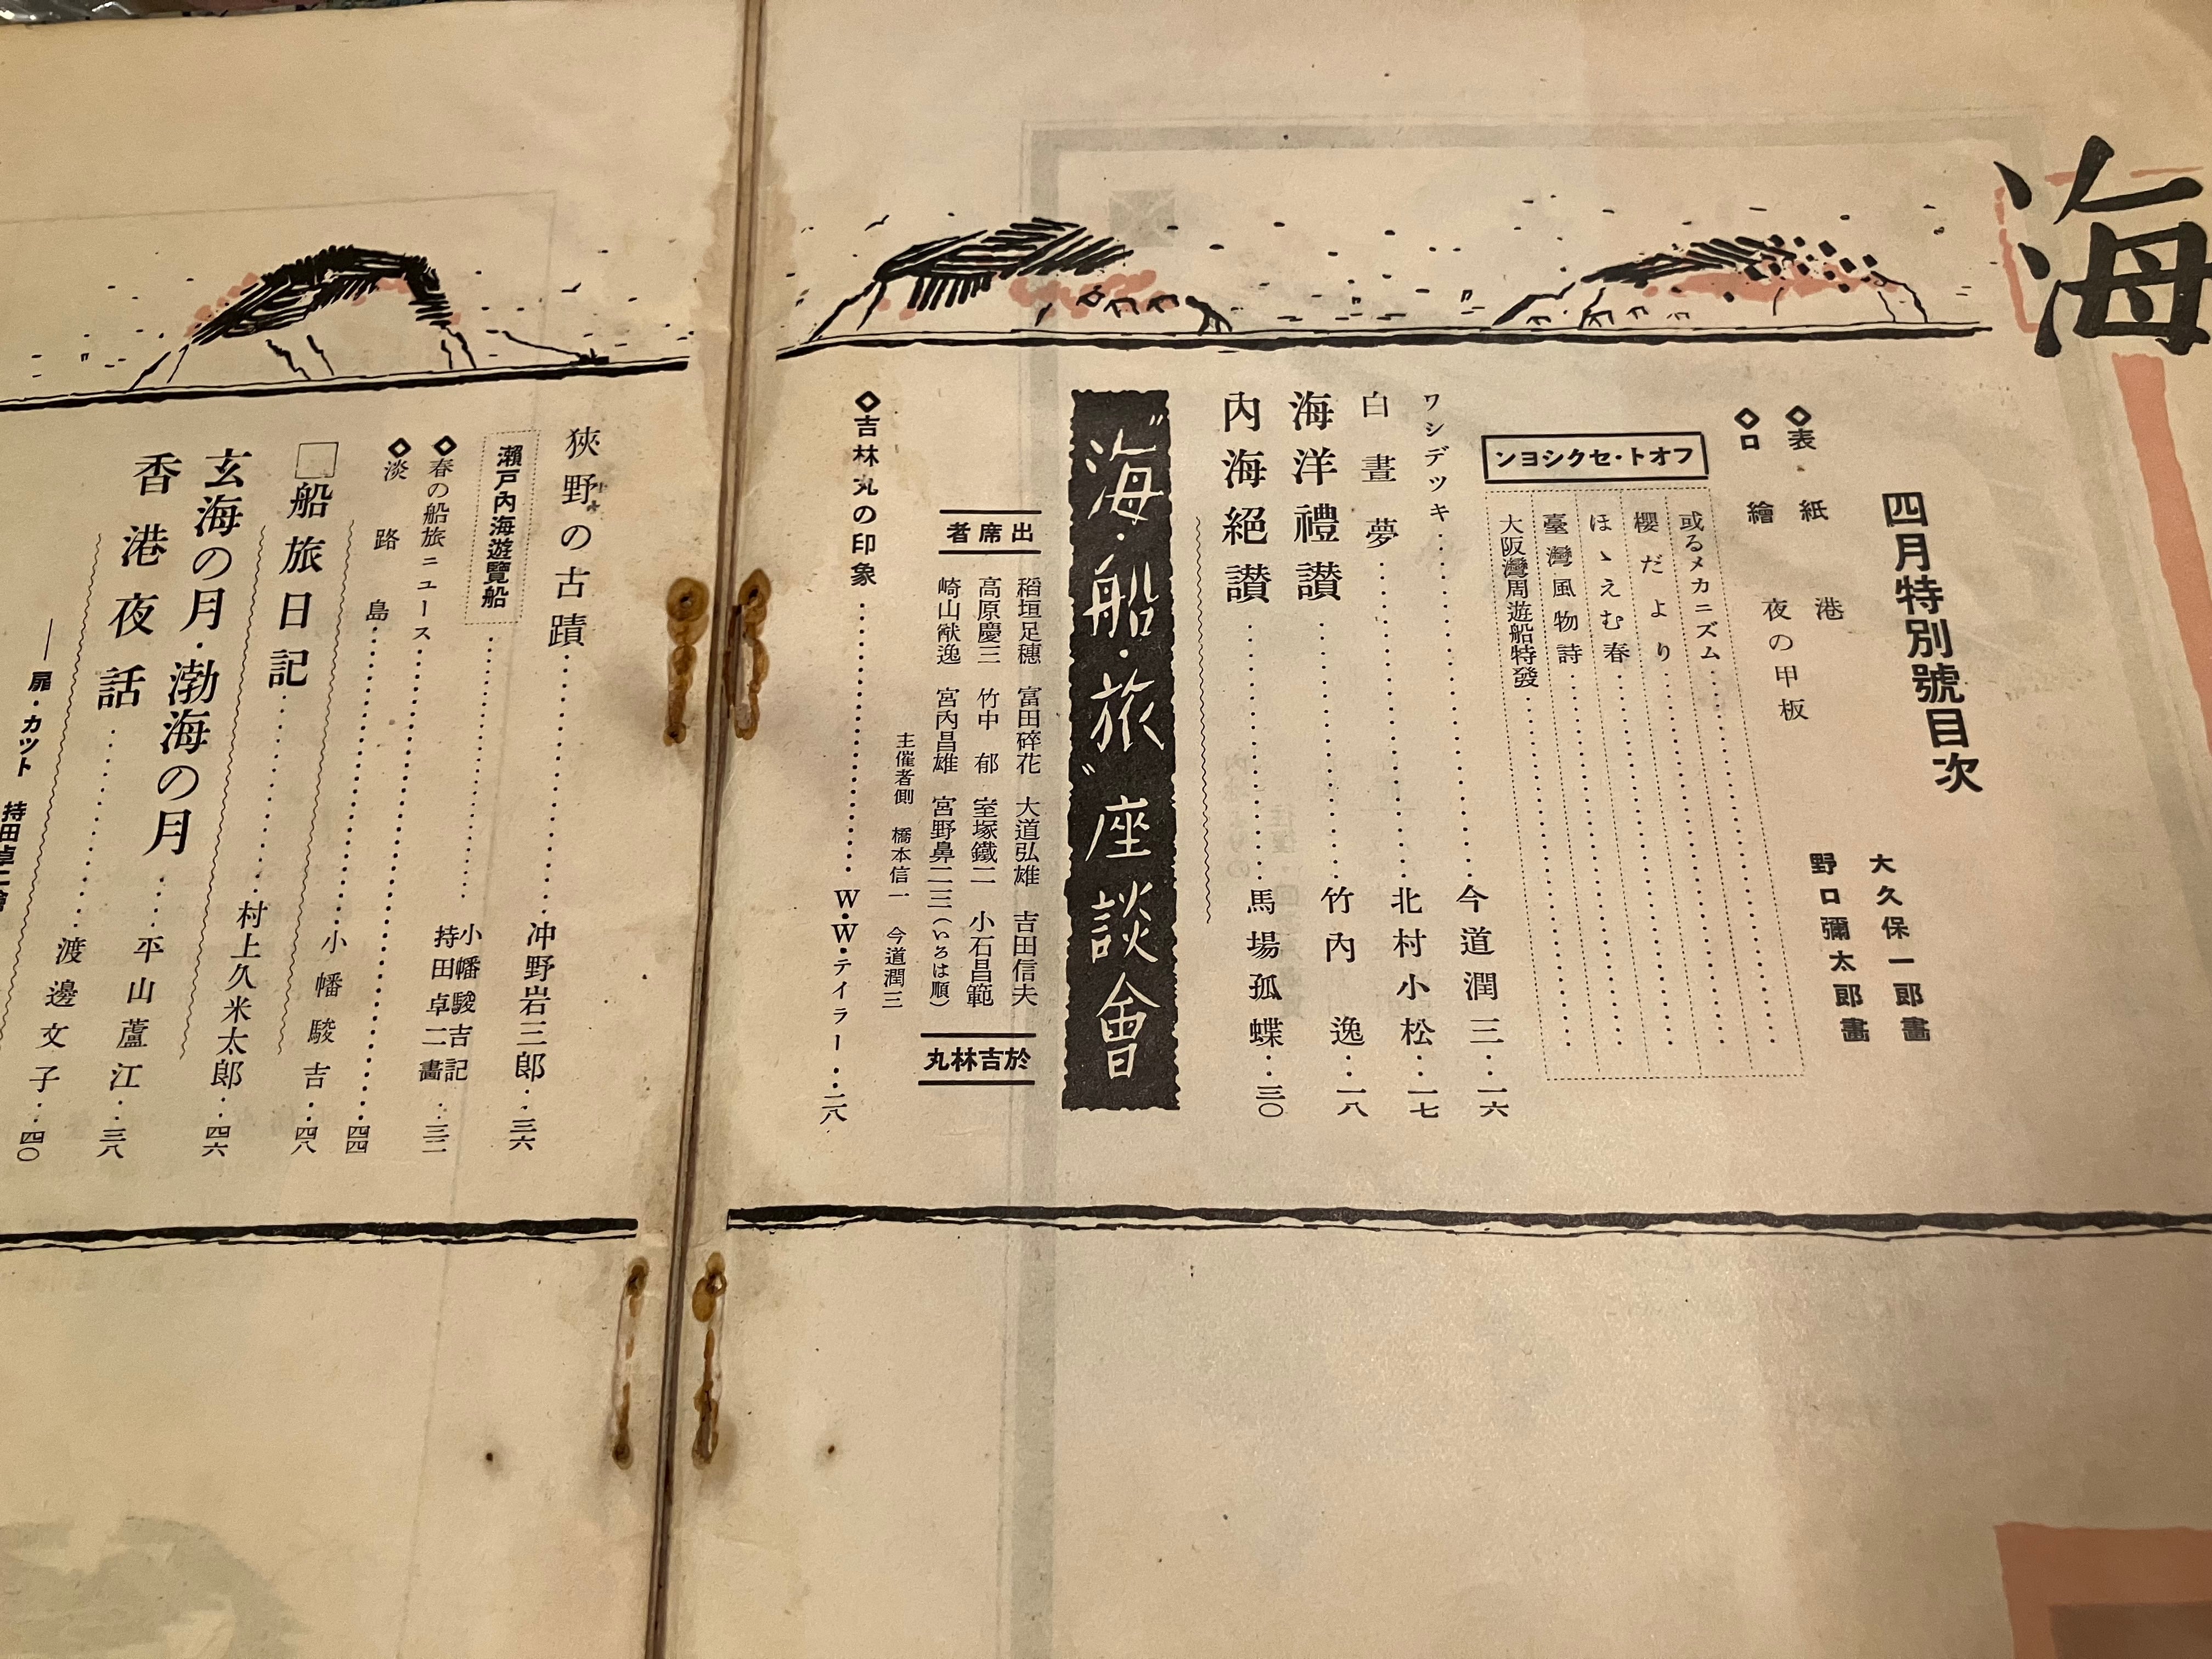 海
四月特別號目次
◇表紙 港 大久保一郎畵
◇口繪 夜の甲板 野口彌太郎畵
フオト・セクシヨン
或るメカニズム
櫻だより
ほゝえむ春
臺灣風物詩
大阪灣周遊船特發
ワシデツキ 今道潤三 一六
白晝夢 北村小松 一七
海洋禮讃 竹內逸 一八
內海絕讃 馬場孤蝶 三〇
〝海・船・旅〟座談會
出席者
稻垣足穗 富田碎花 大道弘雄 吉田信夫
高原慶三 竹中郁 室塚鐵二 小石昌範
崎山猷逸 宮內昌雄 宮野鼻二三(いろは順)
主催者側 橋本信一 今道潤三
於吉林丸
◇吉林丸の印象 W・W・テイラー 二八
狹野の古蹟 沖野岩三郎 三六
瀨戶內海遊覽船 小幡駿吉記 持田卓二畵 三二
◇春の船旅ニュース 四四
◇淡路島 小幡駿吉 四八
船旅日記 村上久米太郎 四六
玄海の月・渤海の月 平山蘆江 三八
香港夜話 渡邊文子 四〇
――扉・カツト 持田卓二繪